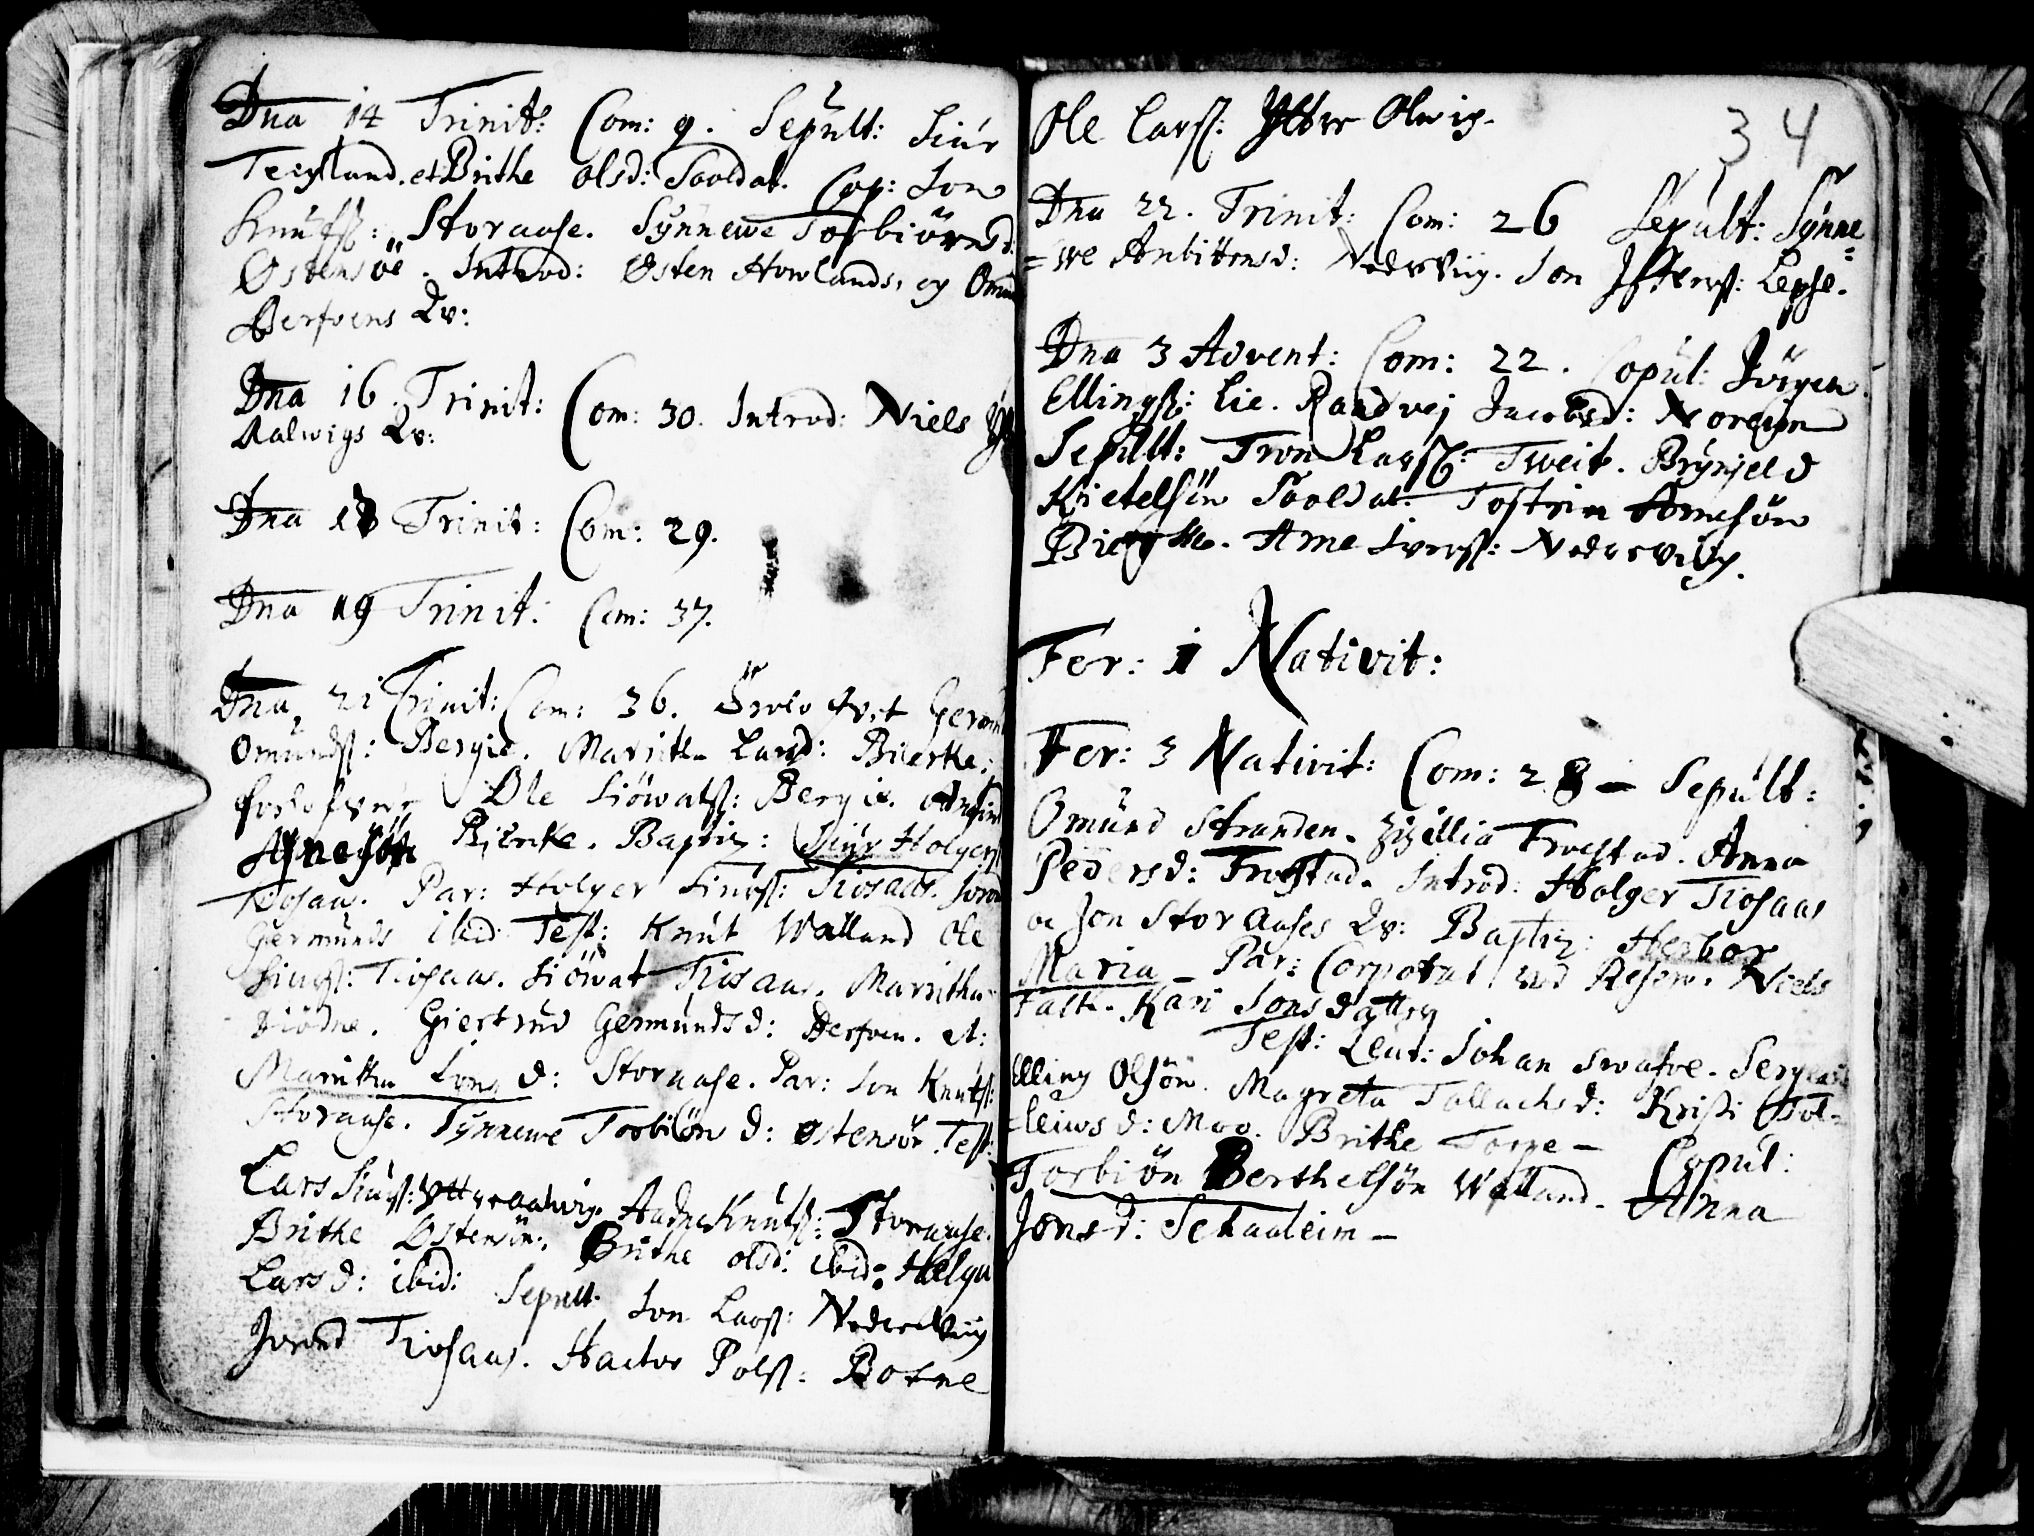 Dna 14 Trinit: Com: 9. Sepult: Siur
Teigland. et Brithe olsd: Sooldat. Cop: Jon
Knutss: Storaase. Synnewe Torbiörnsd:
Østensöe. Introd: Østen Howlands, og Omun
Berfvens Qv:
Dna 16. Trinit: Com: 30. Introd: Niels
Aalwigs Qv:
Dna 18 Trinit: Com: 29.
Dna 19 Trinit: Com: 37.
Dna 21 Trinit: Com: 36. Germu
Omundss: Bergie. Maritha Larsd: Bierke.
Ole Siöwatss: Bergie.
Arnesön Bierke. Baptiz: Siur Holgerss
Tiosaas. Par: Holger Siurss: Tiosaas. Joron
Germunds ibid: Test: Knut Walland Ole
Siurss: Tiosaas. Siöwat Tiosaas. Maritha
Giertrud Germundsd: Berfven. et:
Maritha Jons d: Storaase. Par: Jon Knutss:
Storaase. Synnewe Torbiön d: Østensöe. Test:
Lars Siurss: Ytteraalwig. Knutss: Storaase.
Brithe Østensöe. Brithe olsd: ibid: Helga
Lars d: ibid: Sepult. Jon Larss: Nedrewiig
Jorond Tiosaas. Hactor Polss: Botne
Ole Larss: Ytter Olwig.
34
Dna 22. Trinit: Com: 26 Sepult: Synne
=we Anbittonsd: Nedrwiig. Jon Lepse.
Dna 3 Advent: Com: 22. Copul: Jörgen
Ellingss: Lie. Randvej Jacobsd: Noreim
Sepult: Tron Larss: Tweit. Brynjeld
Kietelsön Sooldat. Tostein Arnesön
Bierke. Arne Iverss: Nedrewiig.
Fer: 1 Nativit:
Fer: 3 Nativit: Com: 28 – Sepult:
Omund Stranden. Zizillia Froestad. Anna
Pedersd: Froestad. Introd: Holger Tiosaas
oc Jon Storaases Qv: Baptiz: Herbor
Maria – Par: Corporal ved Reserv. Niels
Falk. Kari Jonsdatter
Test: Leut: Johan Swasve. Sergeant
Elling Olsön. Magreta Tollachsd: Kristi Tol-
=leiws d: Moo. Brithe Torpe – Copul:
Torbiön Berthelsön Walland. Anna
Jonsd: Schaaleim –